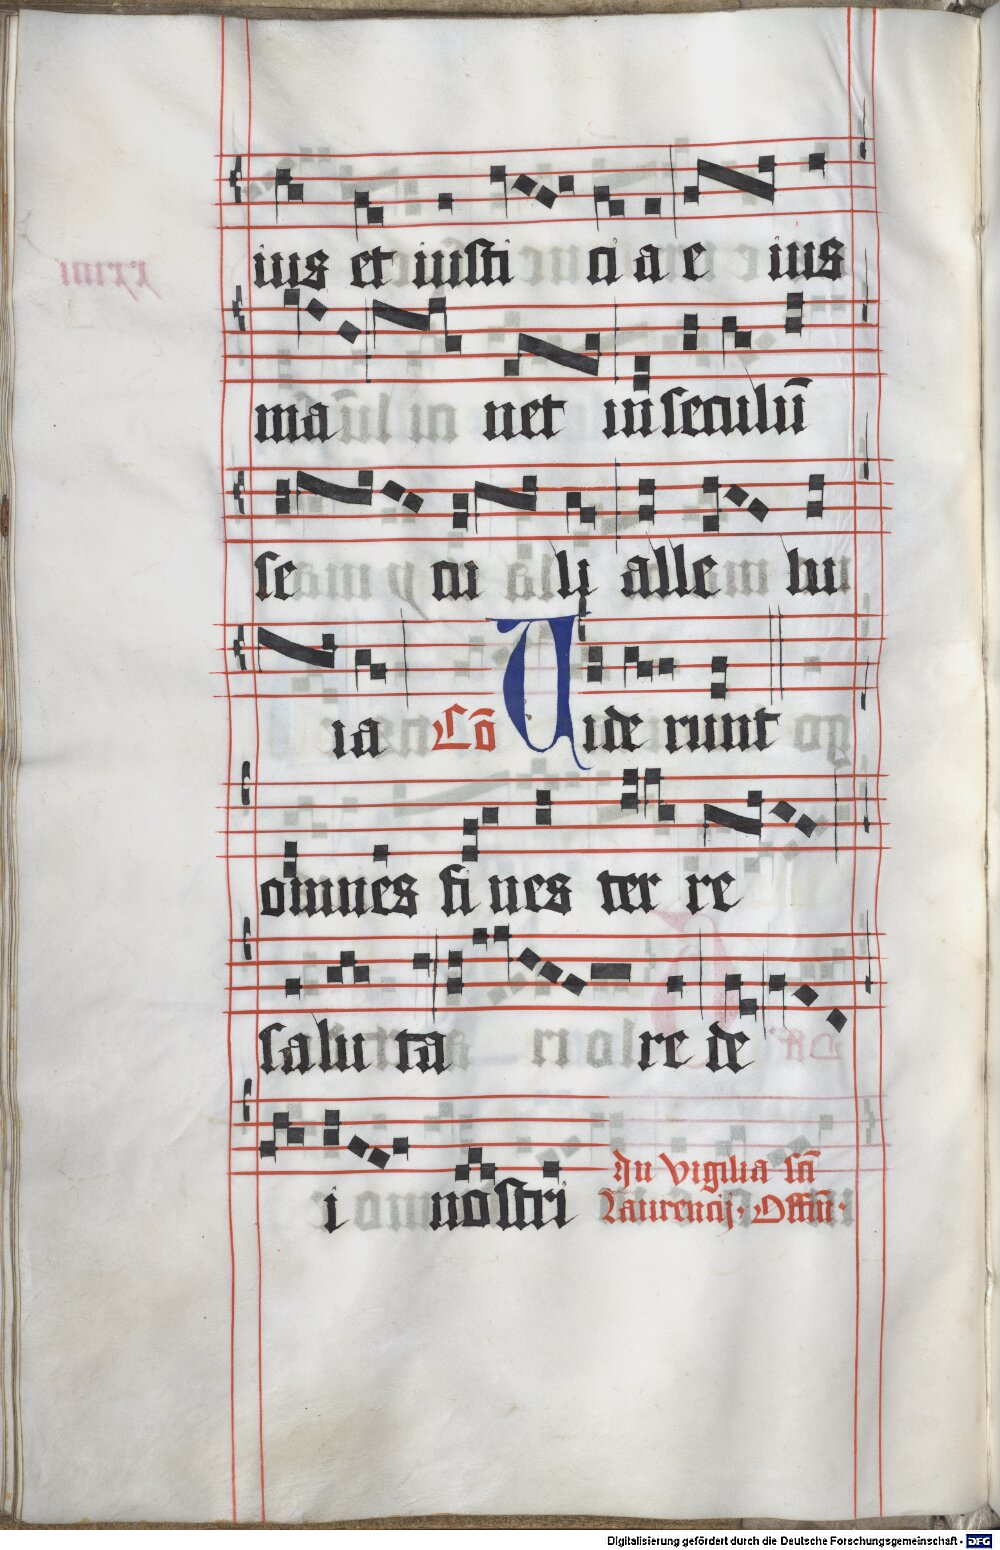 ius et iusti ci a e ius
ma net in seculū
se cu li alle lu
ia Cō Vide runt
omnes fi nes ter re
salu ta re de
i nostri In vigilia sēti
Laurencij · Offm̄ ·
Digitalisierung gefördert durch die Deutsche Forschungsgemeinschaft - DFG